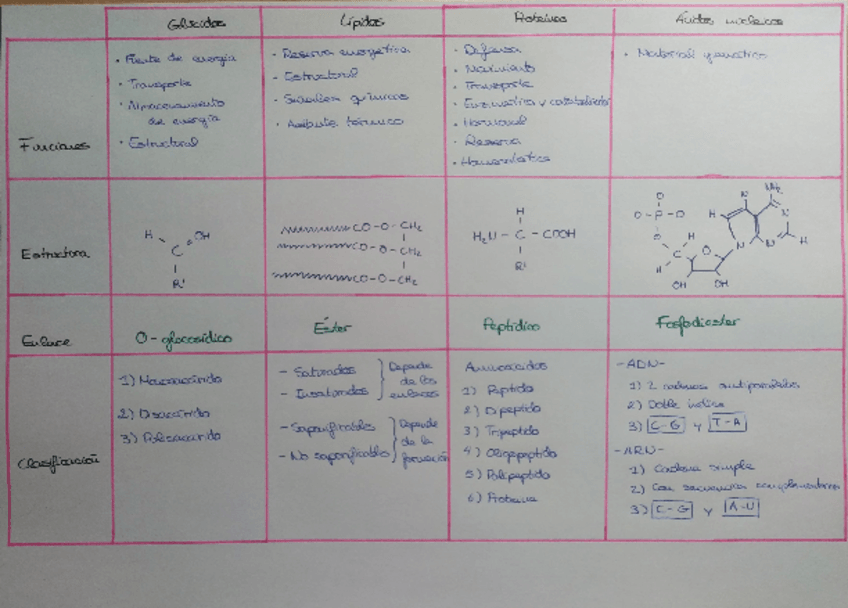 Glúcidos
Lípidos
Proteínas
Ácidos nucleicos
Funciones
· Fuente de energía
· Transporte
· Almacenamiento
de energía
· Estructural
· Reserva energética
· Estructural
· Señales químicas
· Aislante térmico
· Defensa
· Movimiento
· Transporte
· Enzimática y catalizador
· Hormonal
· Reserva
· Homeostática
· Material genético
Estructura
H OH
C
R'
CO-O-CH2
C
CO-O-CH2
C
CO-O-CH2
H
H2N - C - COOH
R'
O
O-P-O
O
C
H
H
O
OH OH
N
H
N
NH2
N
N
H
Enlace
O-glucosídico
Éster
Peptídico
Fosfodiester
Clasificación
1) Monosacárido
2) Disacárido
3) Polisacárido
- Saturados
- Insaturados
Depende
de los
enlaces
- Saponificables
- No saponificables
Depende
de la
formación
Aminoácidos
1) Péptido
2) Dipéptido
3) Tripéptido
4) Oligopéptido
5) Polipéptido
6) Proteína
-ADN-
1) 2 cadenas antiparalelas
2) Doble hélice
3) C-G y T-A
-ARN-
1) Cadena simple
2) Con secuencias complementarias
3) C-G y A-U